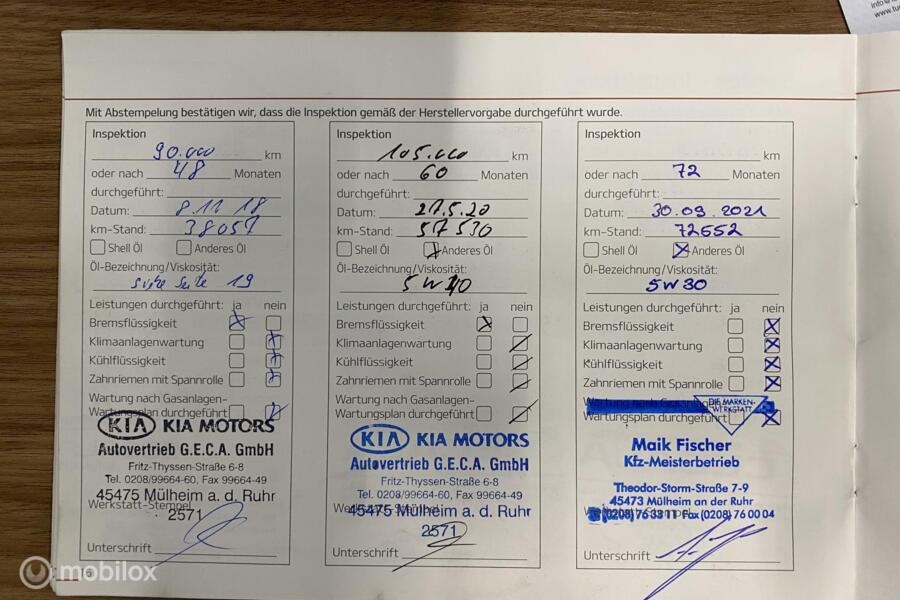 info@
www.tu
Mit Abstempelung bestätigen wir, dass die Inspektion gemäß der Herstellervorgabe durchgeführt wurde.
Inspektion
90.000 km
oder nach 48 Monaten
durchgeführt:
Datum: 8.11 18
km-Stand: 38057
Shell Öl Anderes Öl
Öl-Bezeichnung/Viskosität:
siehe Seite 19
Leistungen durchgeführt: ja nein
Bremsflüssigkeit
Klimaanlagenwartung
Kühlflüssigkeit
Zahnriemen mit Spannrolle
Wartung nach Gasanlagen-
Wartungsplan durchgeführt
KIA KIA MOTORS
Autovertrieb G.E.C.A. GmbH
Fritz-Thyssen-Straße 6-8
Tel. 0208/99664-60, Fax 99664-49
45475 Mülheim a. d. Ruhr
Werkstatt-Stempel
2571
Unterschrift
Inspektion
105.000 km
oder nach 60 Monaten
durchgeführt:
Datum: 27.5.20
km-Stand: 57530
Shell Öl Anderes Öl
Öl-Bezeichnung/Viskosität:
5 W
Leistungen durchgeführt: ja nein
Bremsflüssigkeit
Klimaanlagenwartung
Kühlflüssigkeit
Zahnriemen mit Spannrolle
Wartung nach Gasanlagen-
Wartungsplan durchgeführt
KIA KIA MOTORS
Autovertrieb G.E.C.A. GmbH
Fritz-Thyssen-Straße 6-8
Tel. 0208/99664-60, Fax 99664-49
45475 Mülheim a. d. Ruhr
2571
Unterschrift
Inspektion
km
oder nach 72 Monaten
durchgeführt:
Datum: 30.09.2021
km-Stand: 72652
Shell Öl Anderes Öl
Öl-Bezeichnung/Viskosität:
5W30
Leistungen durchgeführt: ja nein
Bremsflüssigkeit
Klimaanlagenwartung
Kühlflüssigkeit
Zahnriemen mit Spannrolle
Wartung nach Gasanlagen-
DIE MARKEN-
WERKSTATT
Wartungsplan durchgeführt
Maik Fischer
Kfz-Meisterbetrieb
Theodor-Storm-Straße 7-9
45473 Mülheim an der Ruhr
(0208) 76 33 11 Fax (0208) 76 00 04
Unterschrift
16
mobilox